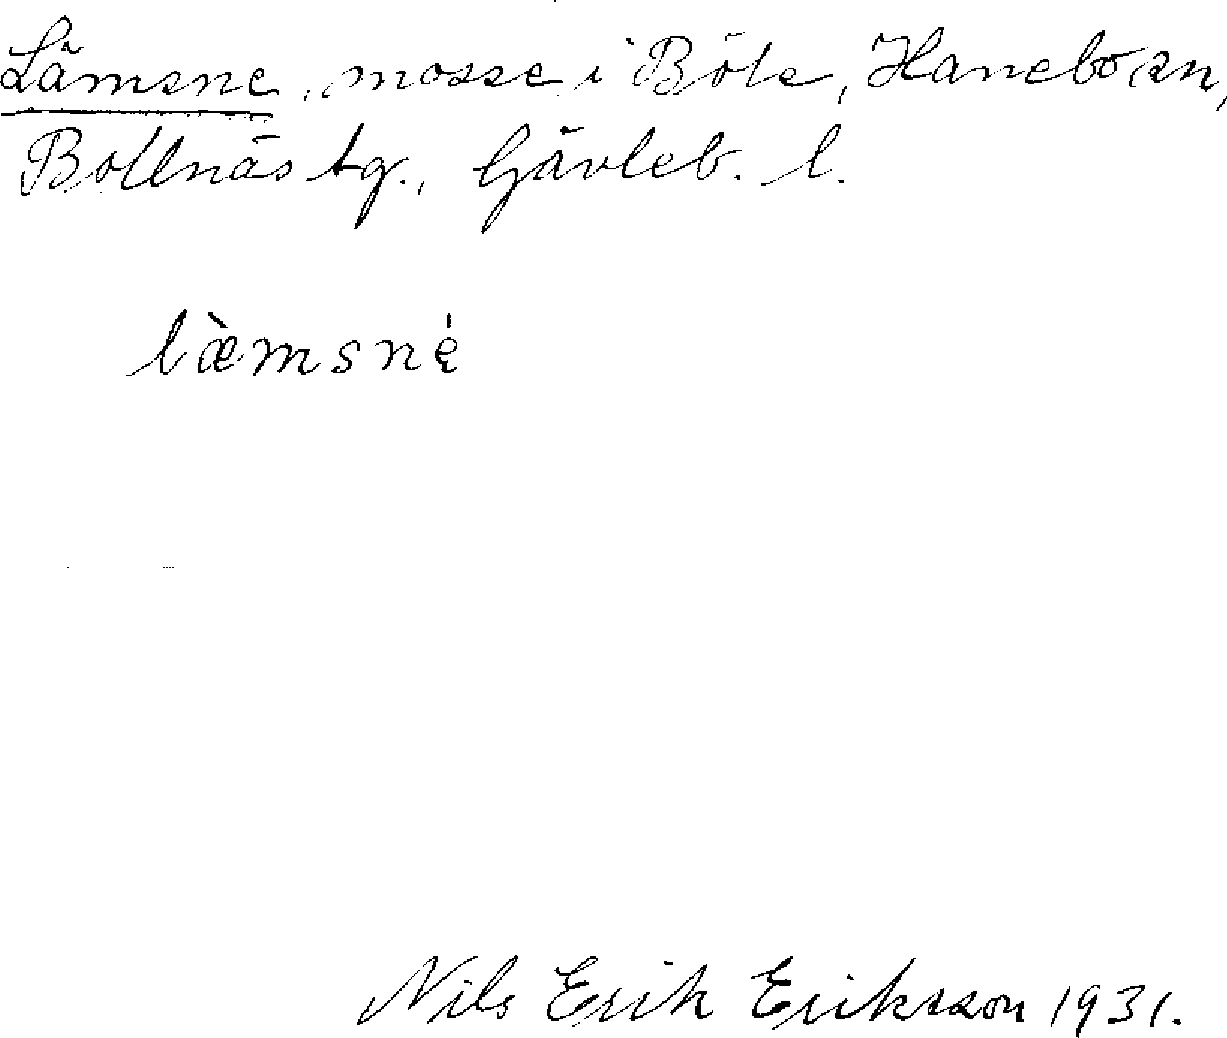 Lämsne, mosse i Böle, Haneboæn,
Bollnäs tg., Gävleb. l.
læ̀msnę̇
Nils Erik Eriksson 1931.